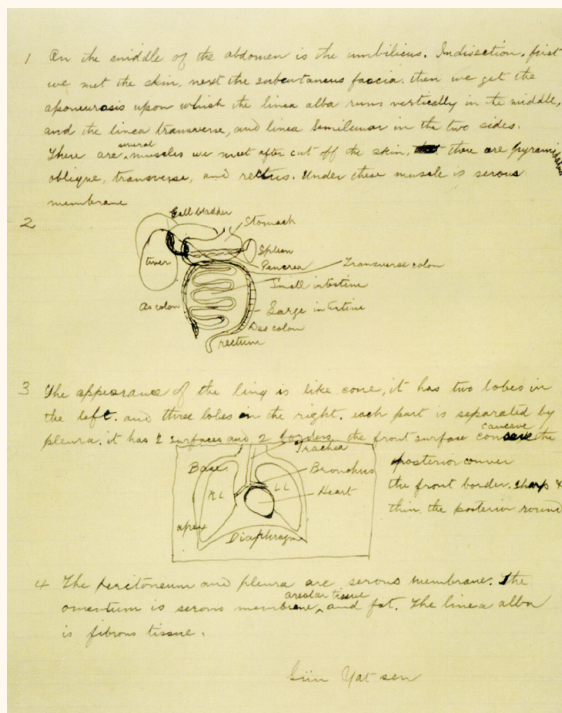 1 On the middle of the abdomen is the umbilicus. Indisection, first
we met the skin, next the subcutaneus fascia. then we get the
aponeurosis upon which the linea alba runs vertically in the middle,
and the linea transverse, and linea Semilunar in the two sides.
There are several muscles we meet after cut off the skin, there are pyramidalis
oblique, transverse, and rectus. Under these muscle is serous
membrane
2
Gall bladder
Stomach
Liver
Spleen
Pancrea
Transverse colon
Small intestine
As colon
Large intestine
Des colon
rectum
3 The appearance of the lung is like cone, it has two lobes in
the left. and three lobes in the right. each part is separated by
pleura. it has 2 surfaces and 2 borders the front surface concave the
posterior conver
the front border, sharp &
thin, the posterior round
Trachea
Base
Bronchus
R L
L L
Heart
apex
Diaphragm
4 The peritoneum and pleura are serous membrane. The
omentum is serous membrane, areolar tissue and fat. The linea alba
is fibrous tissue.
Sün Yat sen